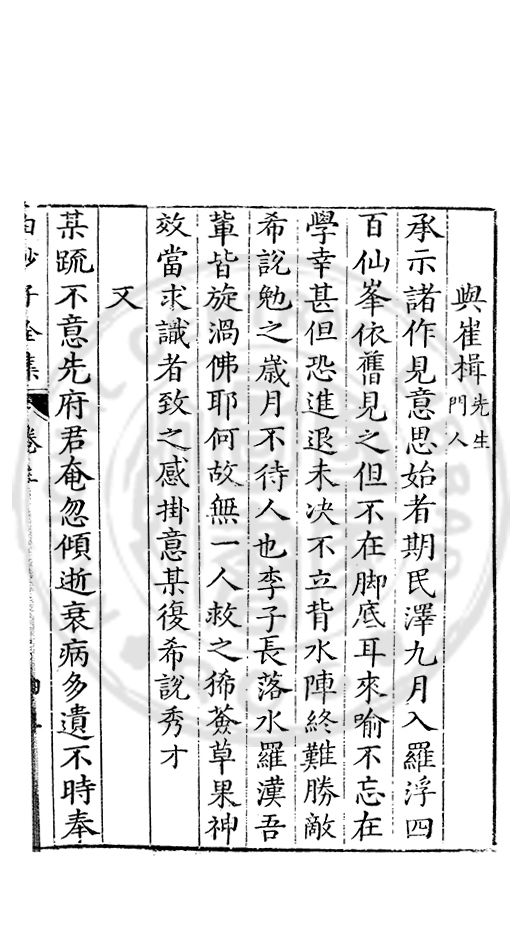 與崔楫先生門人
承示諸作見意思始者期民澤九月入羅浮四
百仙峯依舊見之但不在脚底耳來喻不忘在
學幸甚但恐進退未决不立背水陣終難勝敵
希説勉之歲月不待人也李子長落水羅漢吾
軰皆旋渦佛耶何故無一人救之狶薟草果神
效當求識者致之感掛意某復希説秀才
又
某䟽不意先府君奄忽傾逝衰病多遺不時奉
白沙子全集 卷